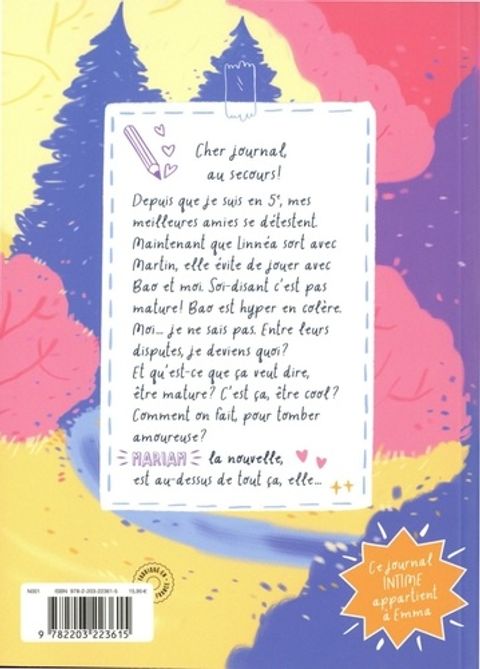 Cher journal,
au secours!
Depuis que je suis en 5e, mes
meilleures amies se détestent.
Maintenant que Linnéa sort avec
Martin, elle évite de jouer avec
Bao et moi. Soi-disant c'est pas
mature! Bao est hyper en colère.
Moi... je ne sais pas. Entre leurs
disputes, je deviens quoi?
Et qu'est-ce que ça veut dire,
être mature? C'est ça, être cool?
Comment on fait, pour tomber
amoureuse?
MARIAM la nouvelle,
est au-dessus de tout ça, elle...
Ce journal
INTIME
appartient
à Emma
N001 ISBN 978-2-203-22361-5 15,90 €
9 782203 223615
FABRIQUÉ EN
FRANCE